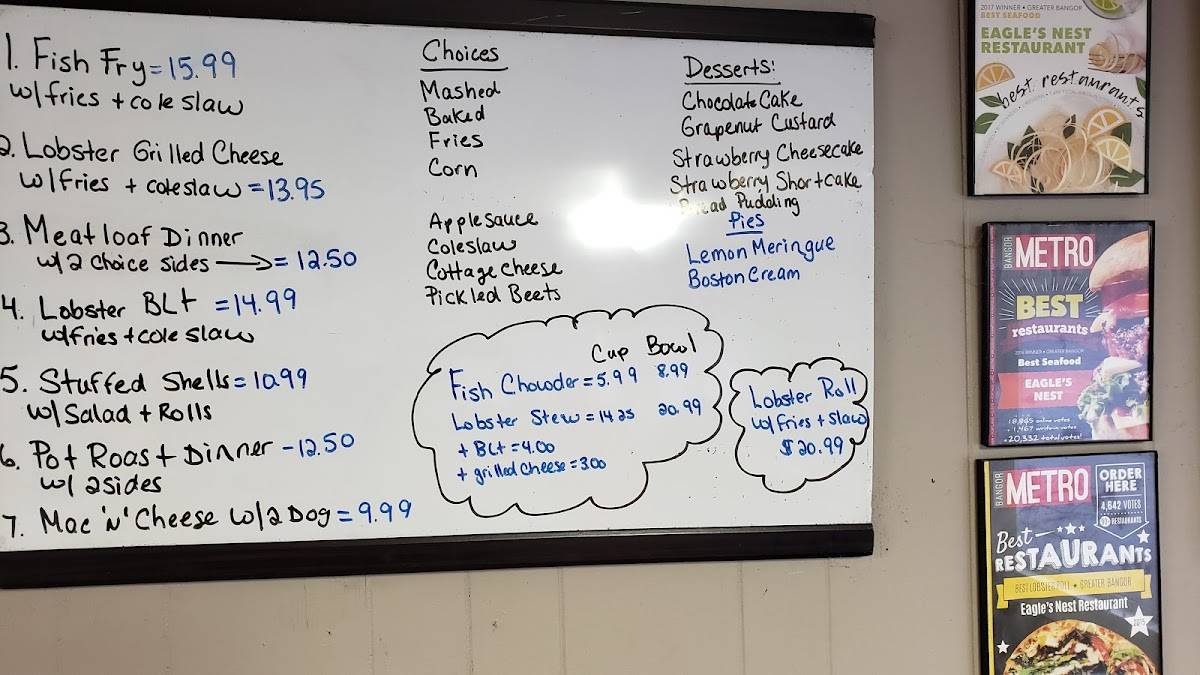 1. Fish Fry = 15.99
w/fries + cole slaw
2. Lobster Grilled Cheese
w/fries + coleslaw = 13.95
3. Meatloaf Dinner
w/2 choice sides → = 12.50
4. Lobster BLt = 14.99
w/fries + cole slaw
5. Stuffed Shells = 10.99
w/Salad + Rolls
6. Pot Roast Dinner - 12.50
w/ 2sides
7. Mac 'N' Cheese w/2 Dog = 9.99
Choices
Mashed
Baked
Fries
Corn
Applesauce
Coleslaw
Cottage cheese
Pickled Beets
Desserts:
Chocolate Cake
Grapenut Custard
Strawberry Cheesecake
Strawberry Shortcake
Bread Pudding
Pies
Lemon Meringue
Boston Cream
Cup Bowl
Fish Chowder = 5.99 8.99
Lobster Stew = 14.25 20.99
+ BLt = 4.00
+ grilled cheese = 300
Lobster Roll
w/ Fries + Slaw
$20.99
2017 WINNER • GREATER BANGOR
BEST SEAFOOD
EAGLE'S NEST
RESTAURANT
best restaurants
BANGOR METRO
BEST
restaurants
WINNER • GREATER BANGOR
Best Seafood
EAGLE'S
NEST
18,865 online votes
+ 1,467 written votes
= 20,332 total votes!
BANGOR METRO
ORDER
HERE
4,642 VOTES
RESTAURANTS
Best
RESTAURANTS
BEST LOBSTER ROLL • GREATER BANGOR
Eagle's Nest Restaurant
2015